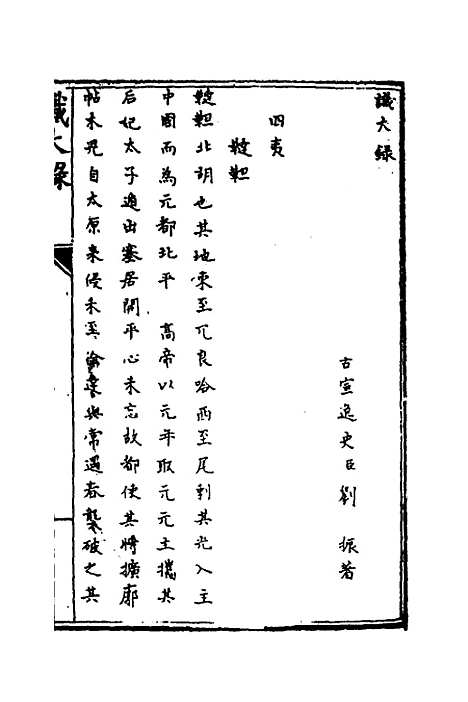 識大錄
古宣逸史臣劉 振著
四夷
韃靼
韃靼北胡也其地東至兀良哈西至尾剌其先入主
中國而為元都北平 高帝以元年取元元主攜其
后妃太子遁出塞居開平心未忘故都使其將擴廓
帖木兒自太原來侵未至徐達與常遇春襲破之其
識大錄